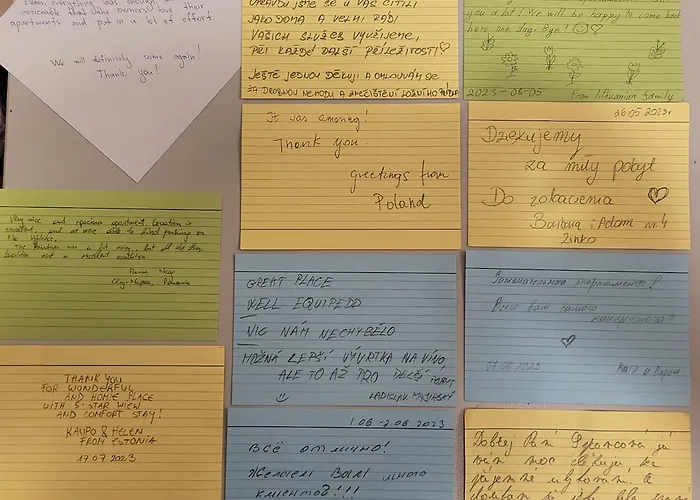 clean, everything was enough
noticeable that the owners love their
apartments and put in a lot of effort.
We will definitely come again!
Thank you!
OPRAVDU JSME SE U VÁS CÍTILI
JAKO DOMA A VELMI RÁDI
VAŠICH SLUŽEB VYUŽIJEME,
PŘI KAŽDÉ DALŠÍ PŘÍLEŽITOSTI ♡
JEŠTĚ JEDNOU DĚKUJI A OMLOUVÁM SE
ZA DROBNOU NEHODU A ZNEČIŠTĚNÍ LOŽNÍHO
you a lot! We will be happy to come back
here one day. Bye! ☺♡
2023-08-05 From lithuanian family
It was amazing!
Thank you
greetings from
Poland
26.05.2023r
Dziękujemy
za miły pobyt
Do zobaczenia ♡
i Adam nr 4
Very nice and spacious apartment. Location is
excellent, and we were able to find parking on
the
The was a bit noisy, but all the
Cluj-Napoca, Romania
THANK YOU
FOR WONDERFUL
AND HOMIE PLACE
WITH 5-STAR WIEW
AND COMFORT STAY!
KAUPO & HELEN
FROM ESTONIA
17.07.2023
GREAT PLACE
WELL EQUIPEDD
VIC NÁM NECHYBĚLO
MOŽNÁ LEPŠÍ VÝVRTKA NA VÍNO,
ALE TO AŽ PRO DELŠÍ POBYT
☺ LADISLAV
Замечательные апартаменты!
Всего вам самого
наилучшего!
♡
07.08.2023
1.08-2.08 2023
Всё отлично!
Желаем Вам много
клиентов!!!
Dobrý den
vám moc děkuji, za